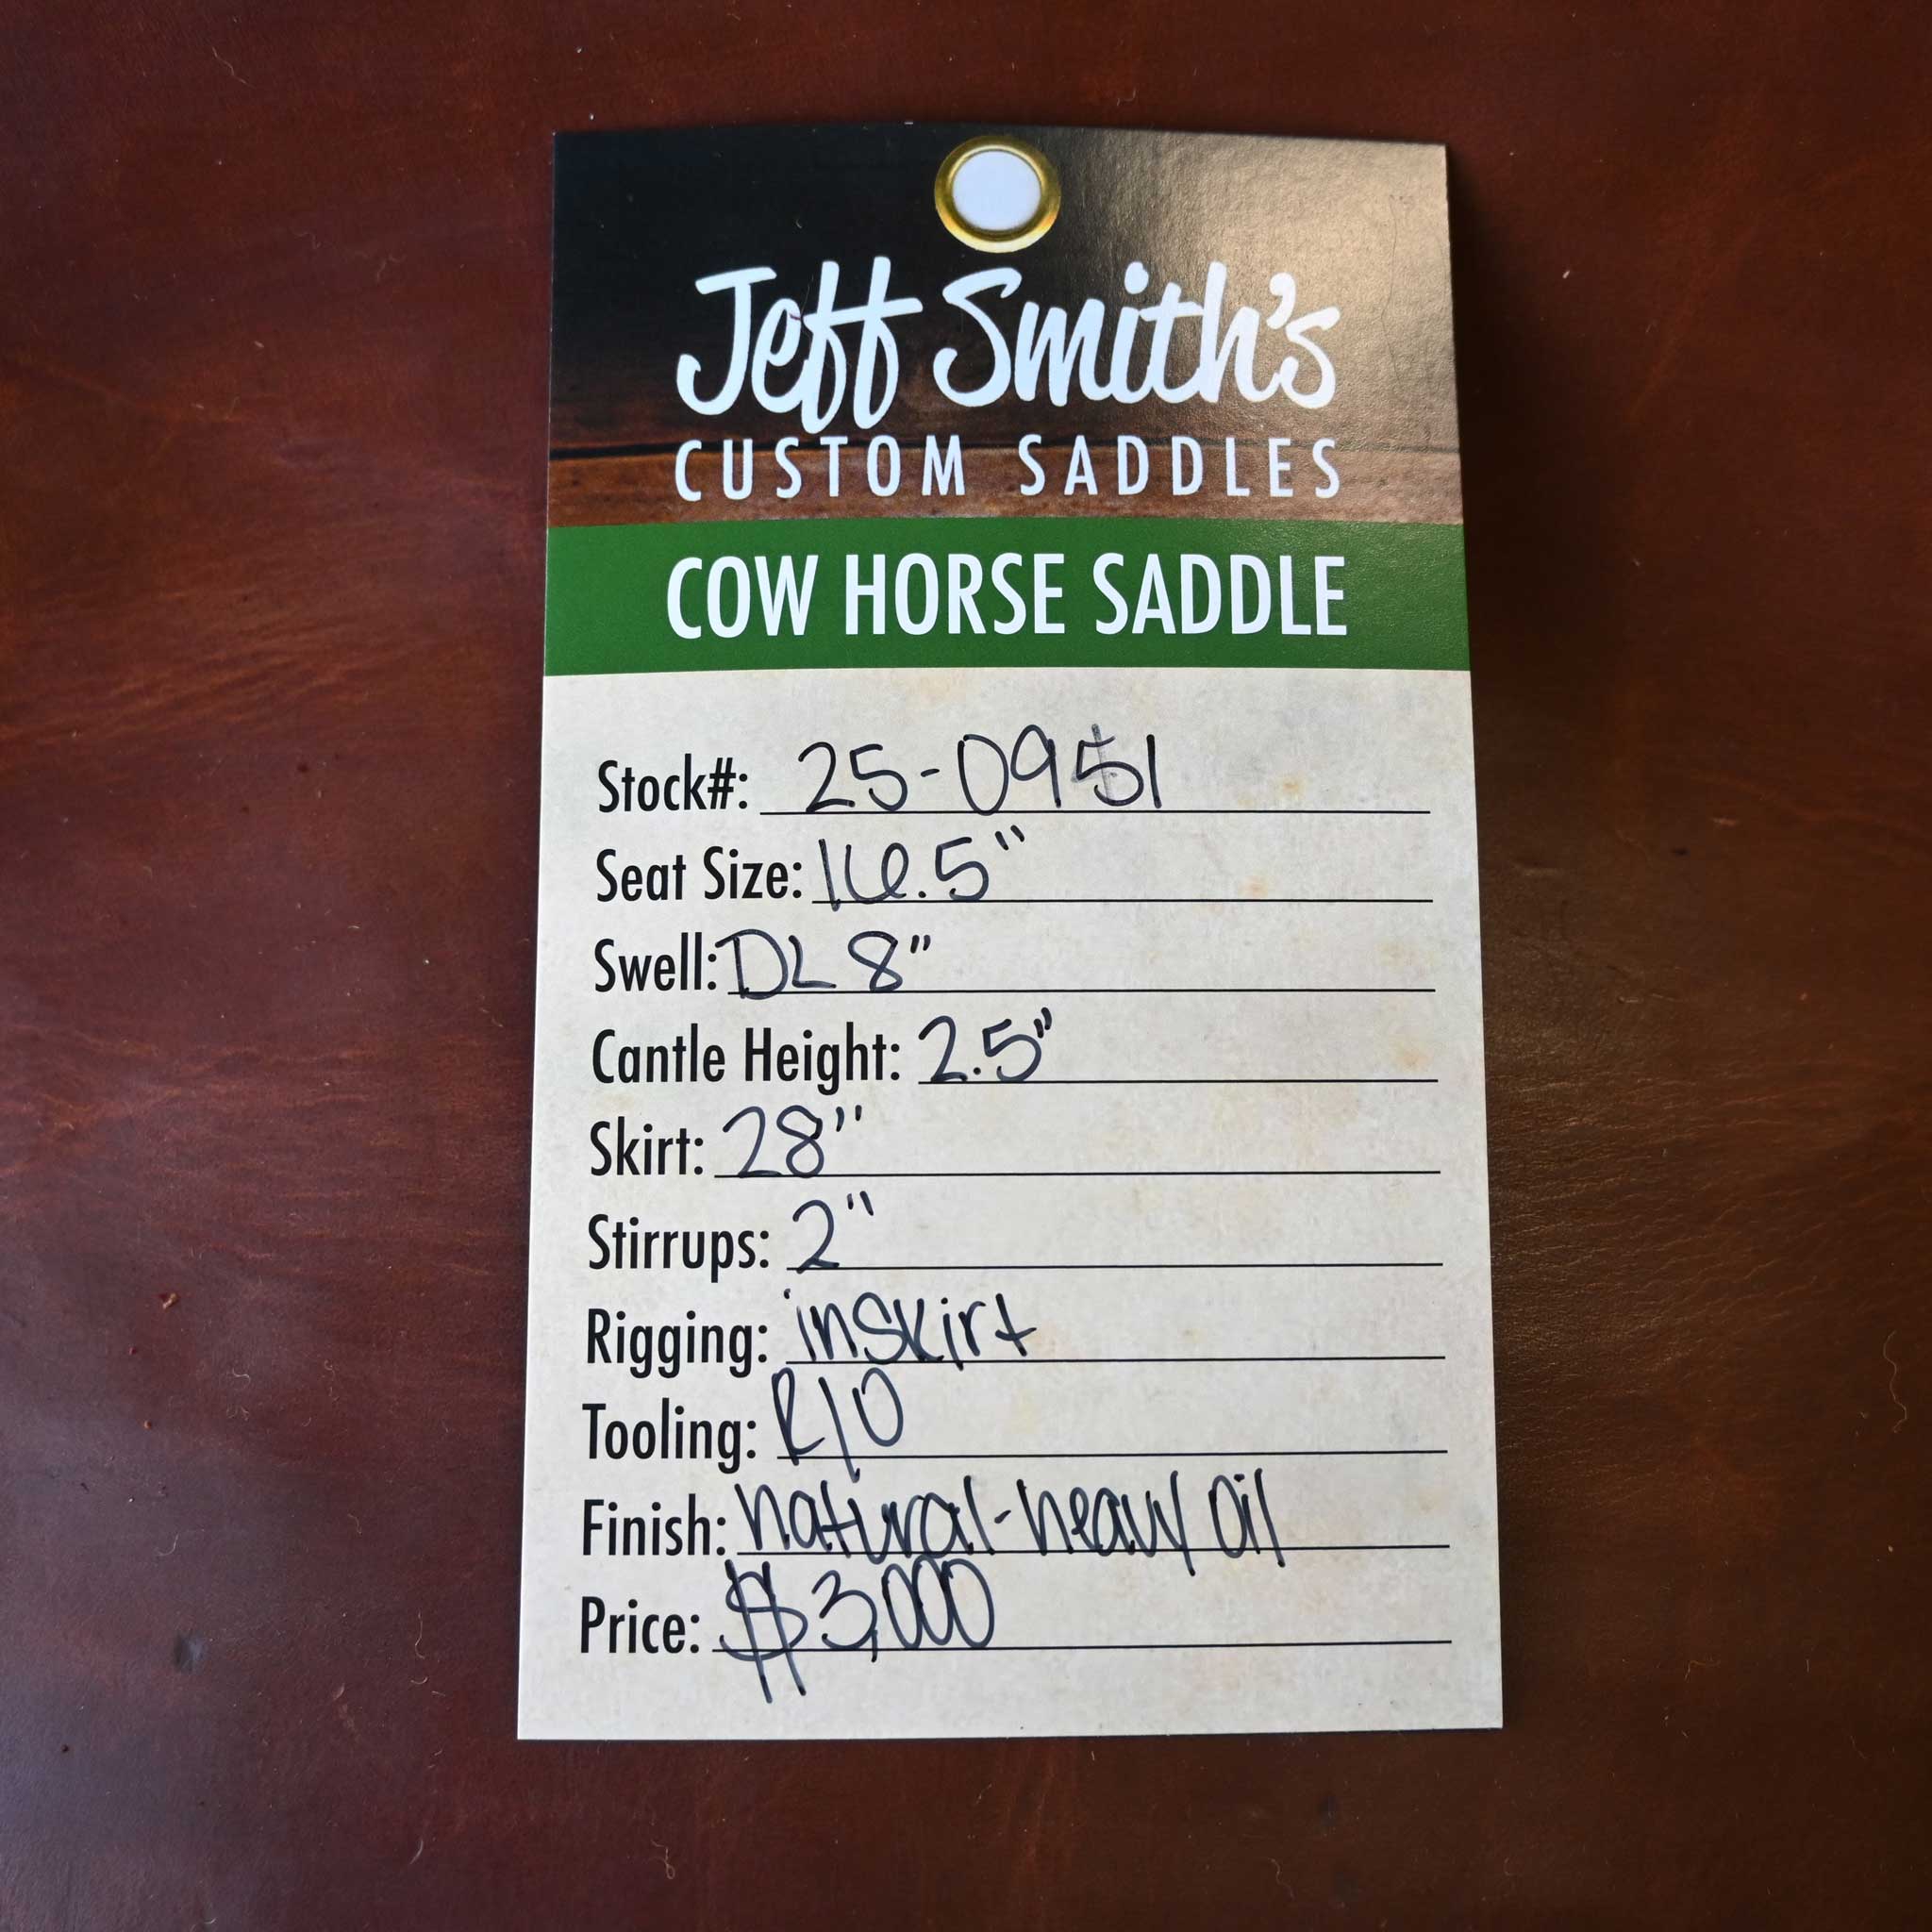 Jeff Smith's
CUSTOM SADDLES
COW HORSE SADDLE
Stock#: 25-0951
Seat Size: 16.5"
Swell: DL 8"
Cantle Height: 2.5"
Skirt: 28"
Stirrups: 2"
Rigging: inskirt
Tooling: R/O
Finish: natural-heavy oil
Price: $3,000